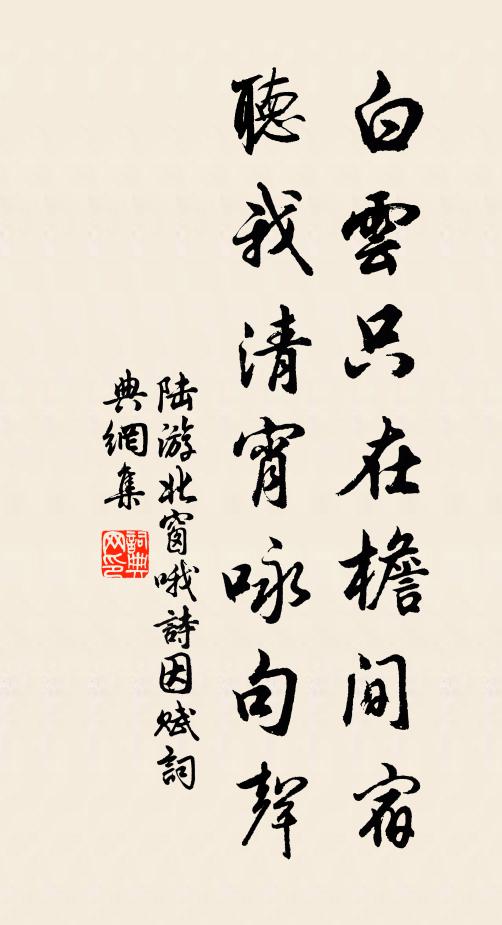 白雲只在檐間宿
聽我清宵咏句聲
陆游北窗哦詩因赋詞
典網集
詞典网印